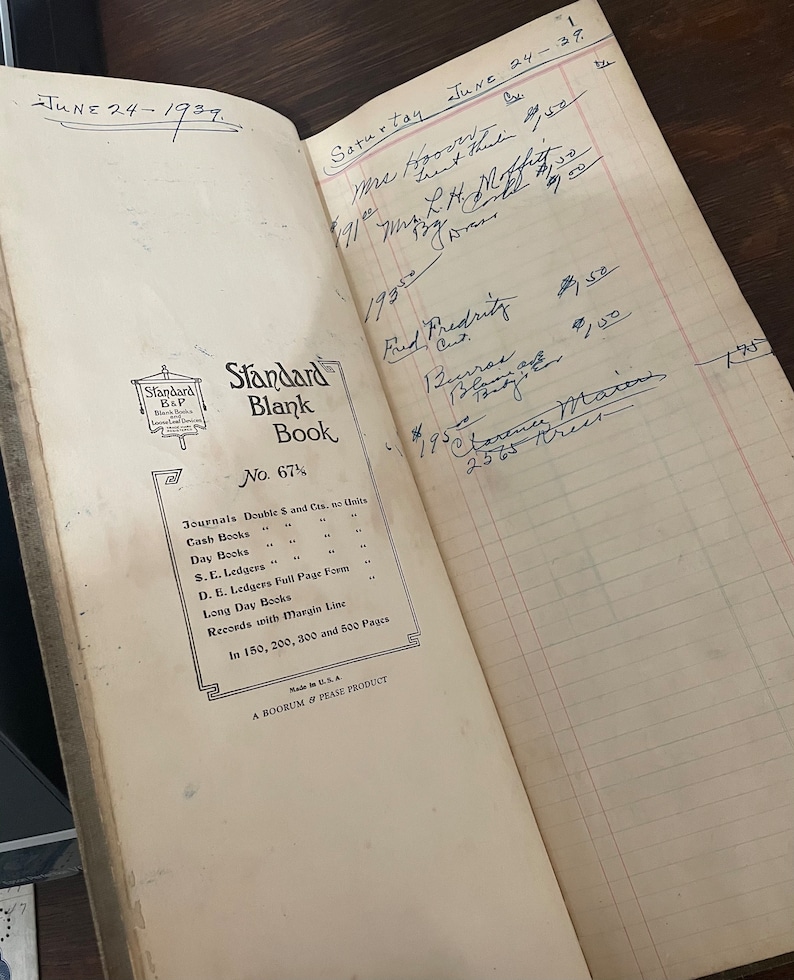 JUNE 24 - 1939.
Standard
B & P
Blank Books
and
Loose Leaf Devices
TRADE MARK
REGISTERED
Standard
Blank
Book
No. 67⅛
Journals Double $ and Cts. no Units
Cash Books " " " "
Day Books " " " "
S. E. Ledgers " " " "
D. E. Ledgers Full Page Form "
Long Day Books "
Records with Margin Line
In 150, 200, 300 and 500 Pages
Made in U. S. A.
A BOORUM & PEASE PRODUCT
1
Saturday JUNE 24 - 39.
Cr.
Mrs Hoover $1,50
Treat
$191 00 Mrs. L. H. Moffitt $1,50
By Cash $1,00
193 50
Fred Fredritz $1,50
Cut.
Burros $1,50
Baby's Ear
$195 00 Clarence Maiers 1,75
2565